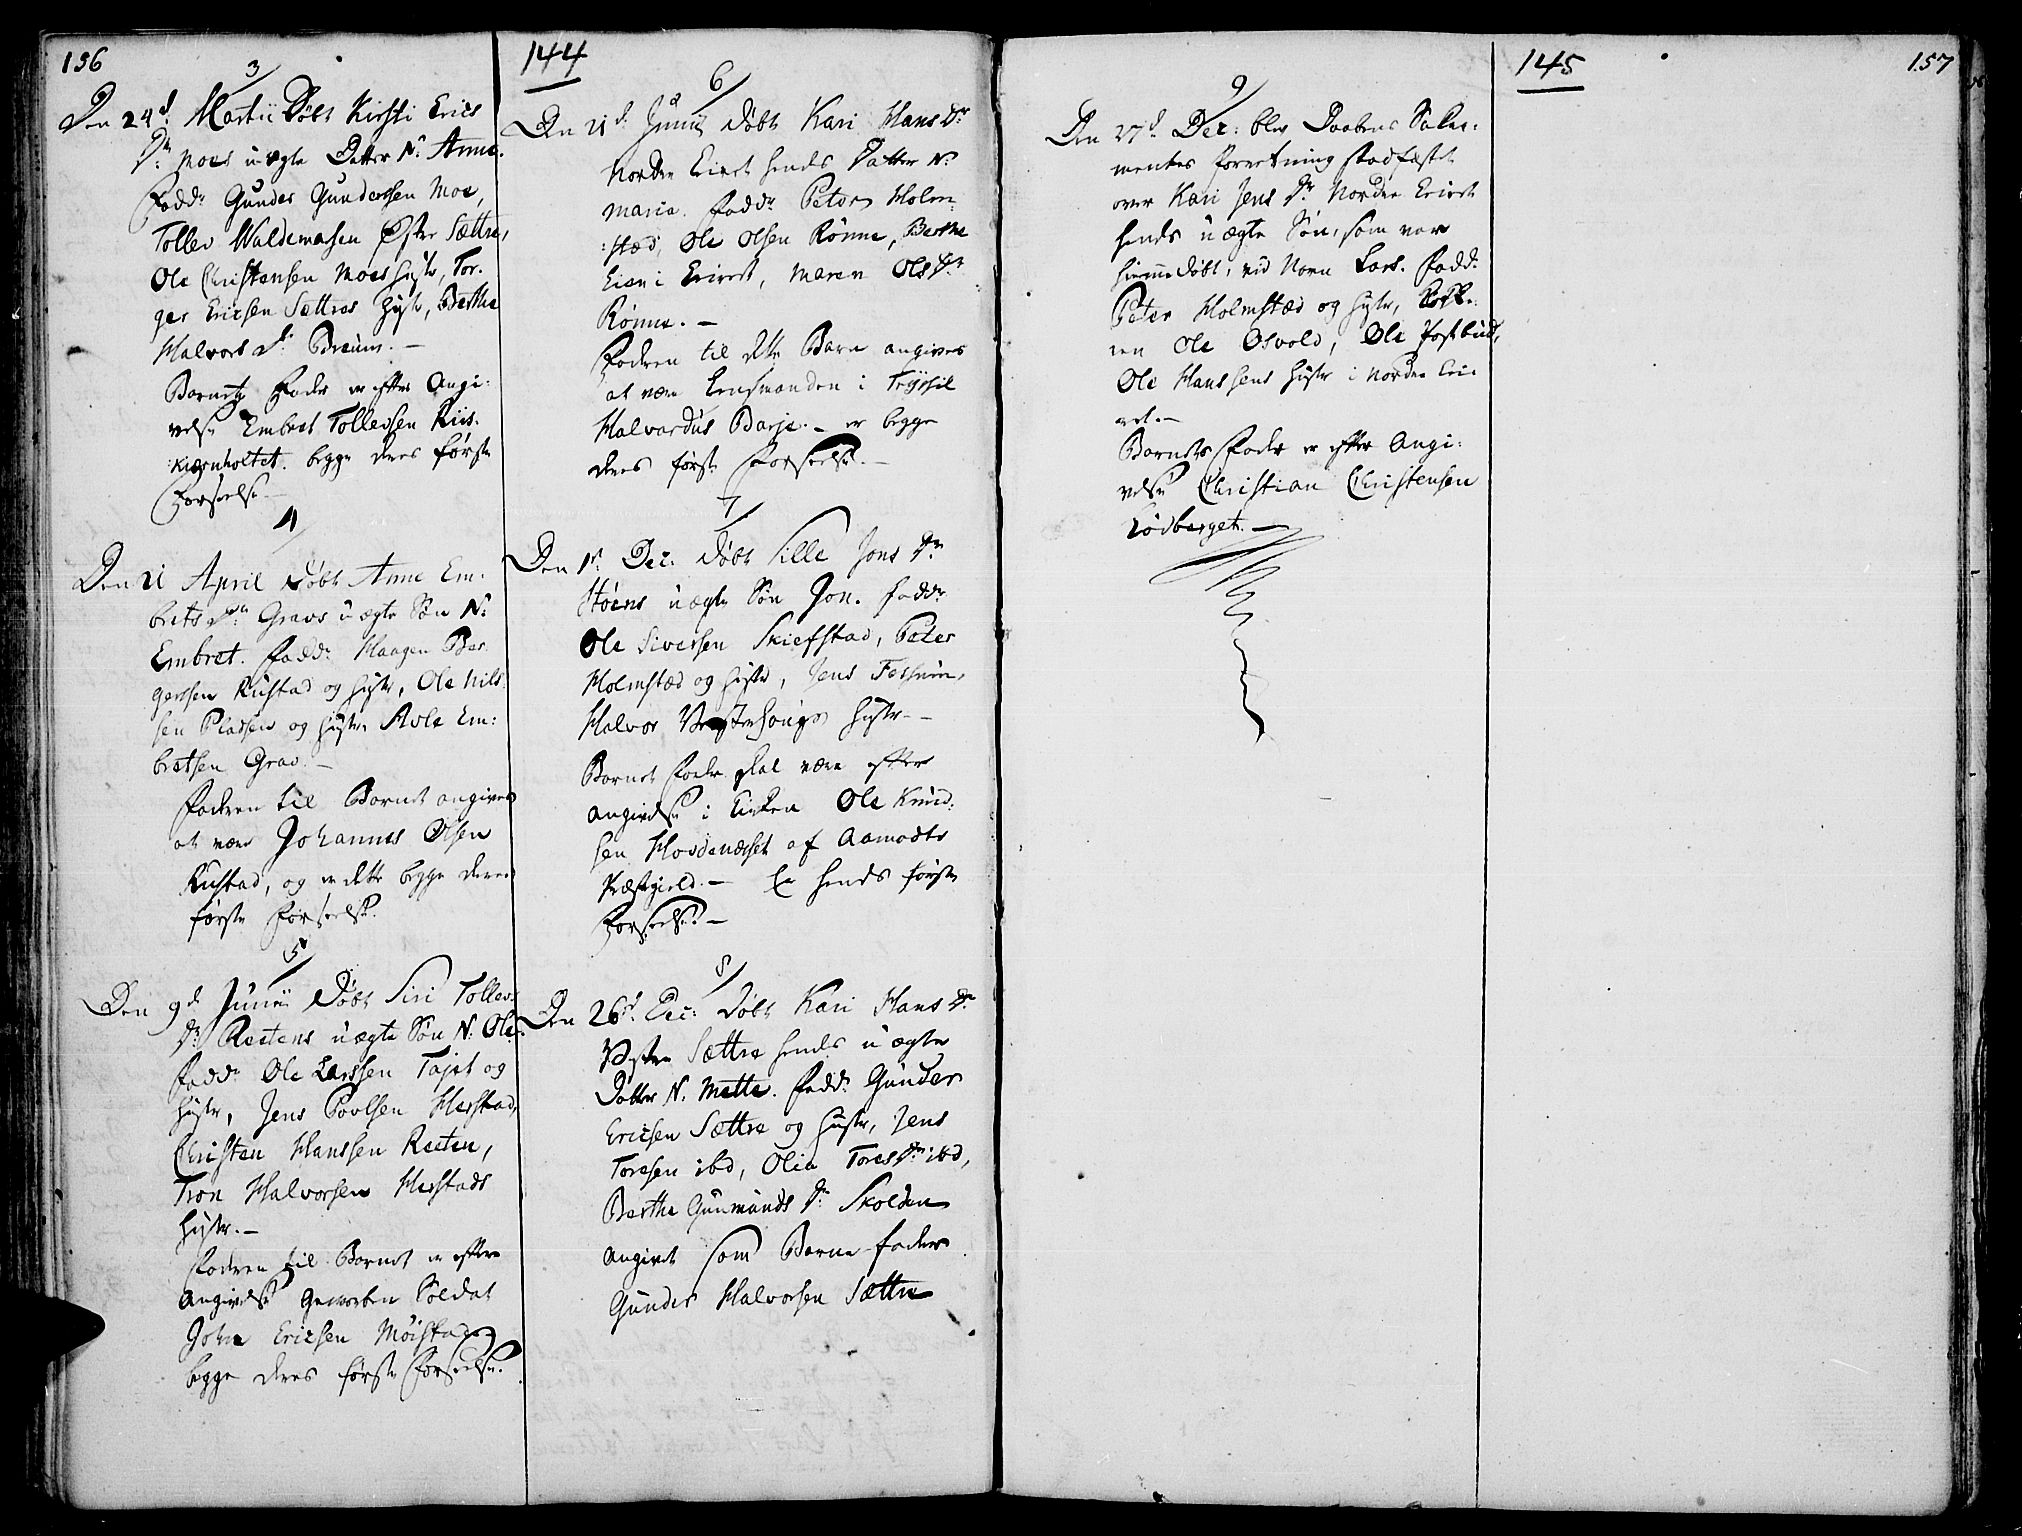 156
3/
Den 24d. Martii Døbt Kirsti Erics
Dr. Moes uægte Datter N. Anne.
Fadd. Gunder Gundersen Moe,
Tollev Waldemarsen Øster Sættre,
Ole Christensen Moes Hustr, Tor-
ger Ericsen Sættres Hustr, Berthe
Halvors Dr. Breum. —
Barnets Fader er efter Angi-
velse Embret Tollevsen Riis-
kiærnholtet. begge deres første
Forseelse. —
4/
Den 21 April Døbt Anne Em-
brets Dr. Gravs uægte Søn N.
Embret. Fadd. Haagen Bør-
gersen Rustad og Hustr, Ole Nils-
sen Pladsen og Hustr Avle Em-
bretsen Grav. —
Faderen til Barnet angives
at være Johannes Olsen
Rustad, og er dette begge deres
første Forseelse.
5/
Den 9d. Junii Døbt Siri Tollevs
Dr. Reetens uægte Søn N. Ole.
Fadd. Ole Larssen Tajet og
Hustr, Jens Poolsen Herstad,
Christen Hanssen Reeten,
Tron Halvorsen Herstads
Hustr. —
Faderen til Barnet er efter
Angivelse Geworben Soldat
John Ericsen Møistad,
begge deres første Forseelse.
144
6/
Den 21d. Junii Døbt Kari Hans Dr.
Nordre Eiret hends Datter N.
Maria. Fadd. Peter Holm-
stæd, Ole Olsen Rønne, Berthe
Eier i Eriret, Maren Ols Dr.
Rønne. —
Faderen til dette Barn angives
at være Lensmanden i Trysil
Halvardus Barje. — er begge
deres første Forseelse. —
7/
Den 1st. Dec: Døbt Sille Jons Dr.
Støens uægte Søn Jon. Fadd.
Ole Siversen Skiefstad, Peter
Holmstæd og Hustr, Jens
Halvor Vestehougs Hustr. —
Barnets Fader skal være efter
Angivelse i Kirken Ole Knud-
sen Hovdenæsset af Aamodts
Præstegield. — Er hends første
Forseelse. —
8/
Den 26d. Dec: Døbt Kari Hans Dr.
Vestre Sættre hends uægte
Datter N. Mette. Fadd. Gunder
Ericsen Sættre og Hustr, Jens
Toresen ibd, Olia Tores Dr. ibd,
Berthe Gunmunds Dr. Skolden
Angivet som Barne-fader
Gunder Halvorsen Sættre
9/
Den 27d. Dec: blev Daabens Sakra-
mentes Forretning stadfæstet
over Kari Jens Dr. Nordre Eriret
hends uægte Søn, som var
hiemme døbt, ved Navn Lars. Fadd.
Peter Holmstæd og Hustr,
Ole Osvold, Ole Postbud,
Ole Hanssens Hustr i Nordre Eri-
ret. —
Barnets Fader er efter Angi-
velse Christian Christensen
Lødberget. —
145
157